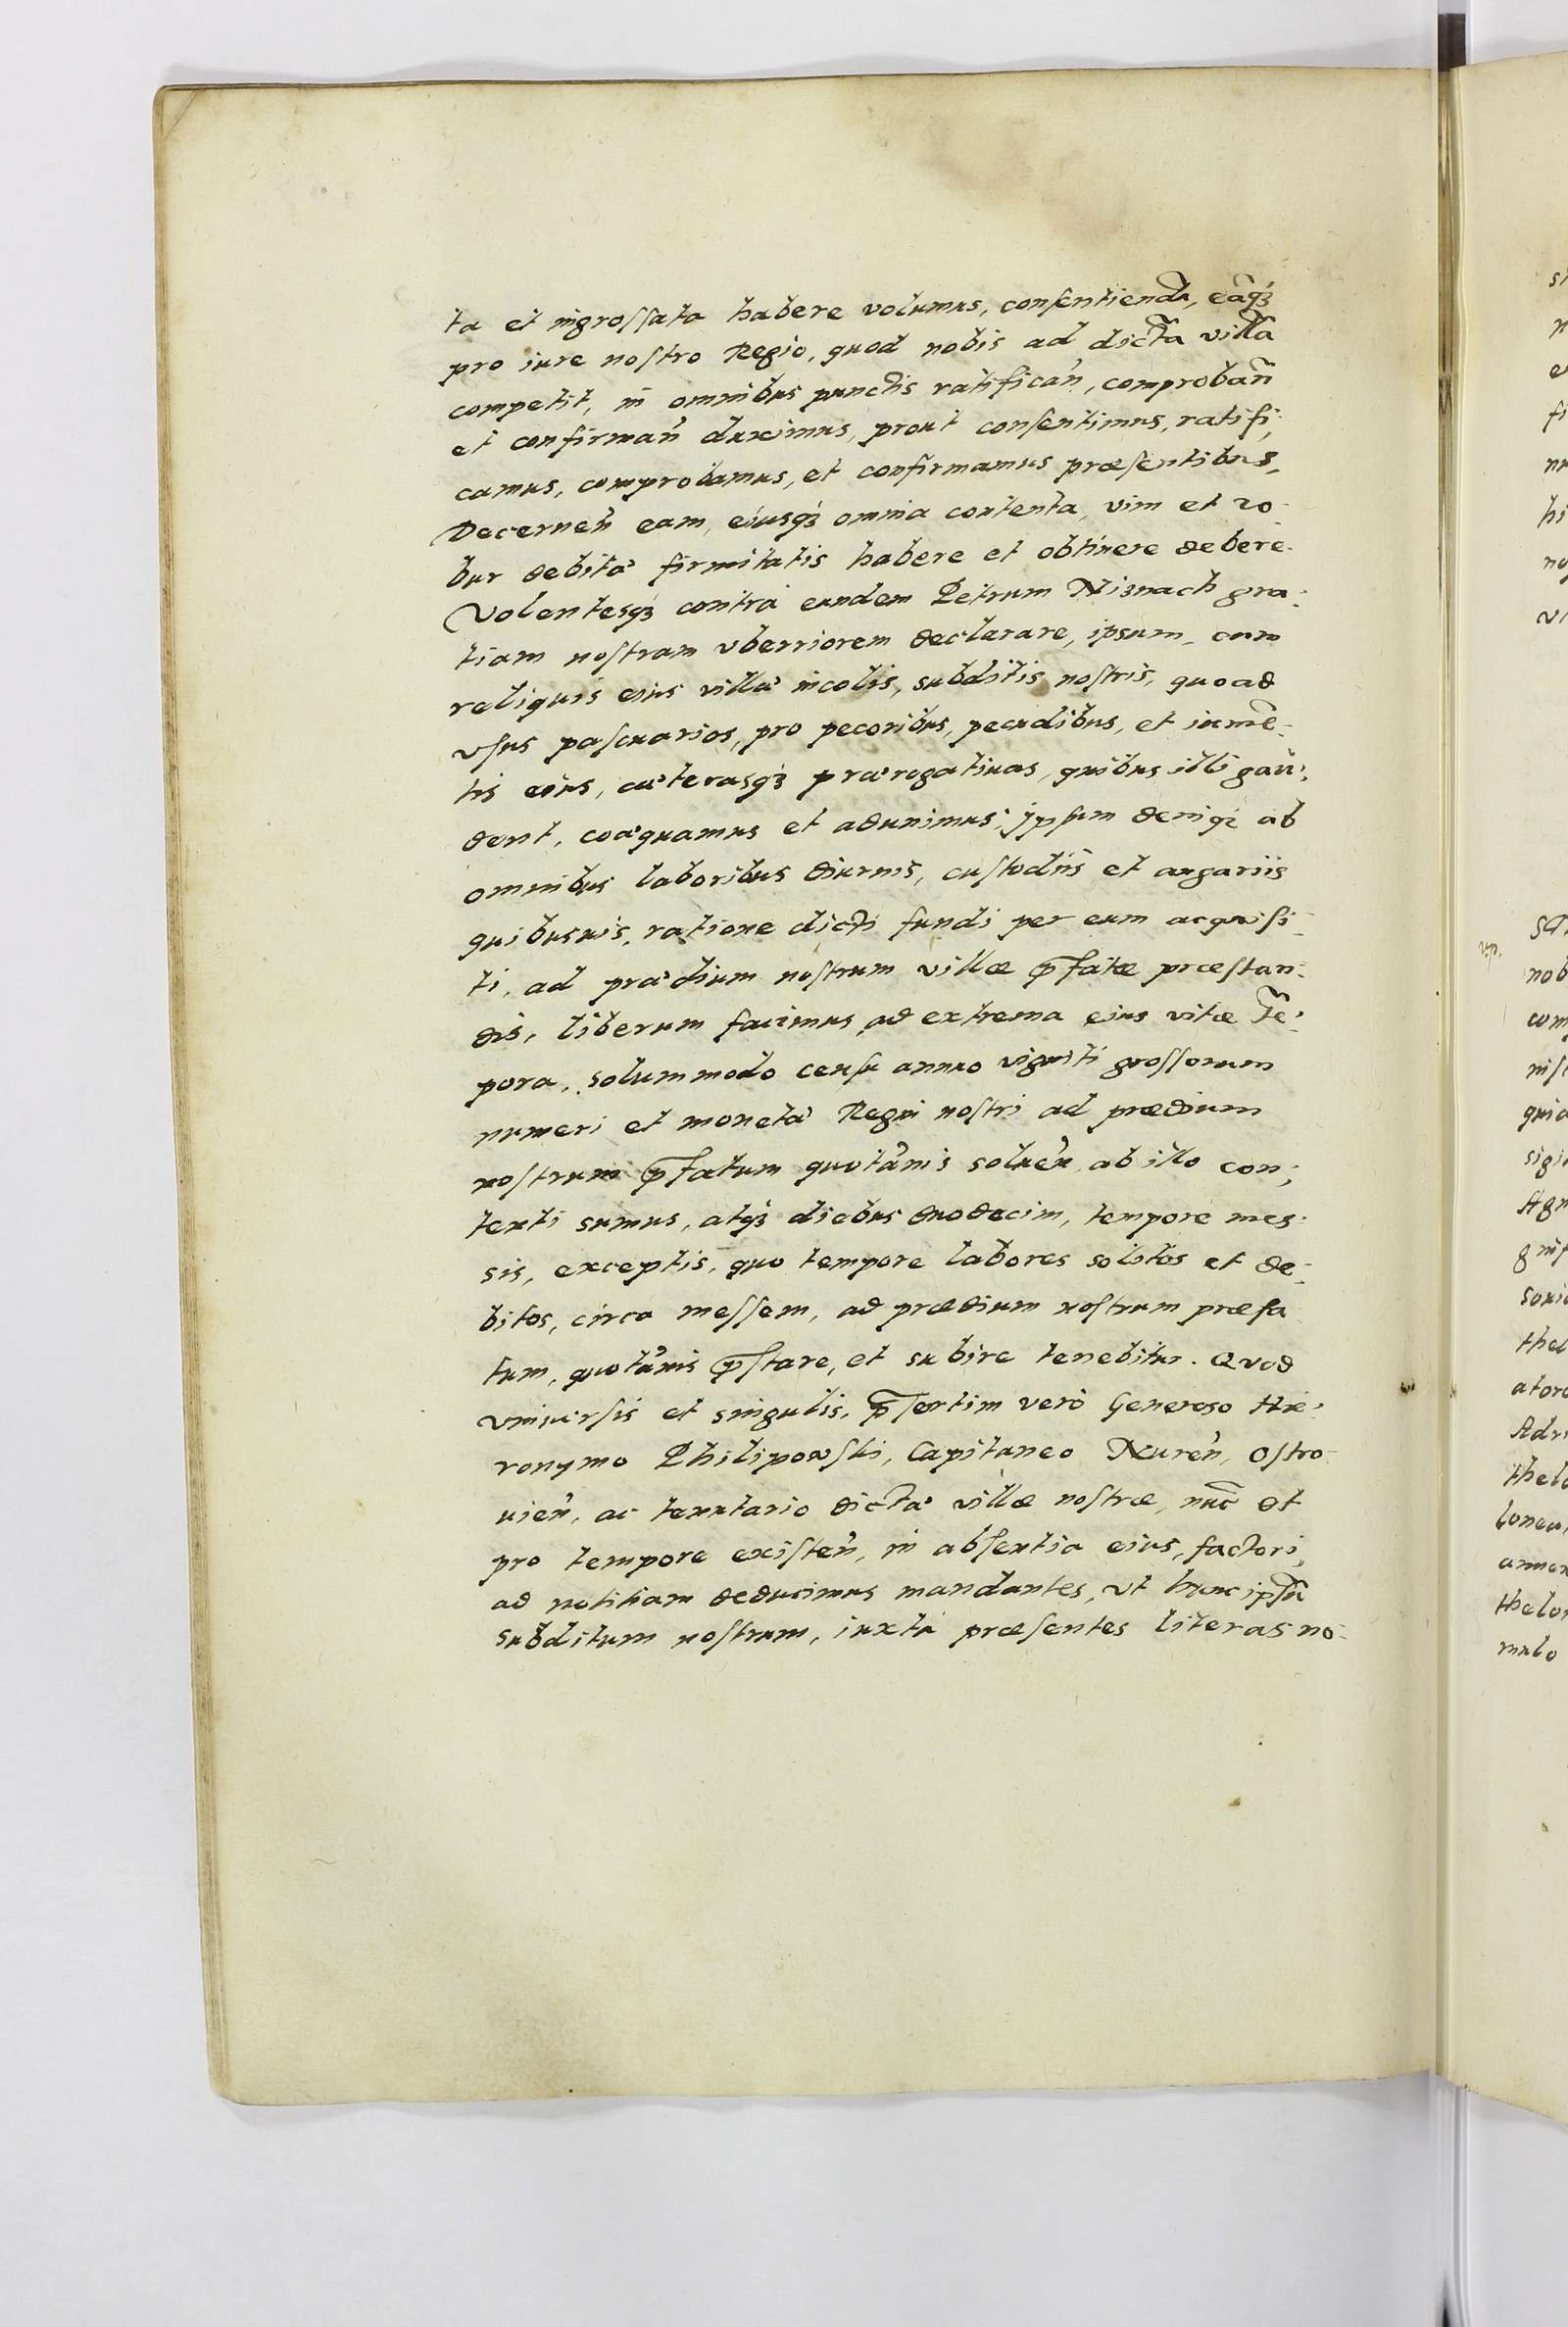 ta et ingrossata habere volumus, consentiendã, eãq́ꝫ
pro iure nostro Regio, quod nobis ad dictã villã
competit, in omnibus punctis ratifican̄, comproban̄
et confirman̄ duximus, prout consentimus, ratifi,
camus, comprobamus, et confirmamus præsentibus,
Decernen̄ eam, eiusq́ꝫ omnia contenta, vim et ro-
bur debitæ firmitatis habere et obtinere debere.
Volentesq́ꝫ contrà eundem Petrum Niznach gra:
tiam nostram vberriorem declarare, ipsum, cum
reliquis eius villæ incolis, subditis nostris, quoad
vsus pascuarios, pro pecoribus, pecudibus, et iumẽ-
tis eius, cæterasq́ꝫ prærogatiuas, quibus illi gau:
dent, coæquamus et adunimus, ipsum deniqꝫ ab
omnibus laboribus diurnis, custodiis et angariis
quibusuis, ratione dicti fundi per eum acquisi-
ti, ad prædium nostrum villæ p̃fatæ præstan:
dis, liberum facimus ad extrema eius vitæ tẽ:
pora, solummodo censu annuo viginti grossorum
numeri et monetæ Regni nostri ad prædium
nostrum p̃fatum quotan̄is soluen̄ ab illo con;
tenti sumus, atq́ꝫ diebus duodecim, tempore mes:
sis, exceptis, quo tempore labores solitos et de:
bitos, circa messem, ad prædium nostrum præfa
tum, quotan̄is p̃stare, et subire tenebitur. Quod
vniuersis et singulis, p̃sertim verò Generoso Hie:
ronymo Philipowski, Capitaneo Neuren̄, Ostro-
uien̄, ac tenutario dictæ villæ nostræ, nũc et
pro tempore existen̄, in absentia eius, factori,
ad notitiam deducimus mandantes, vt hunc ipsũ
subditum nostrum, iuxtà præsentes literas no: